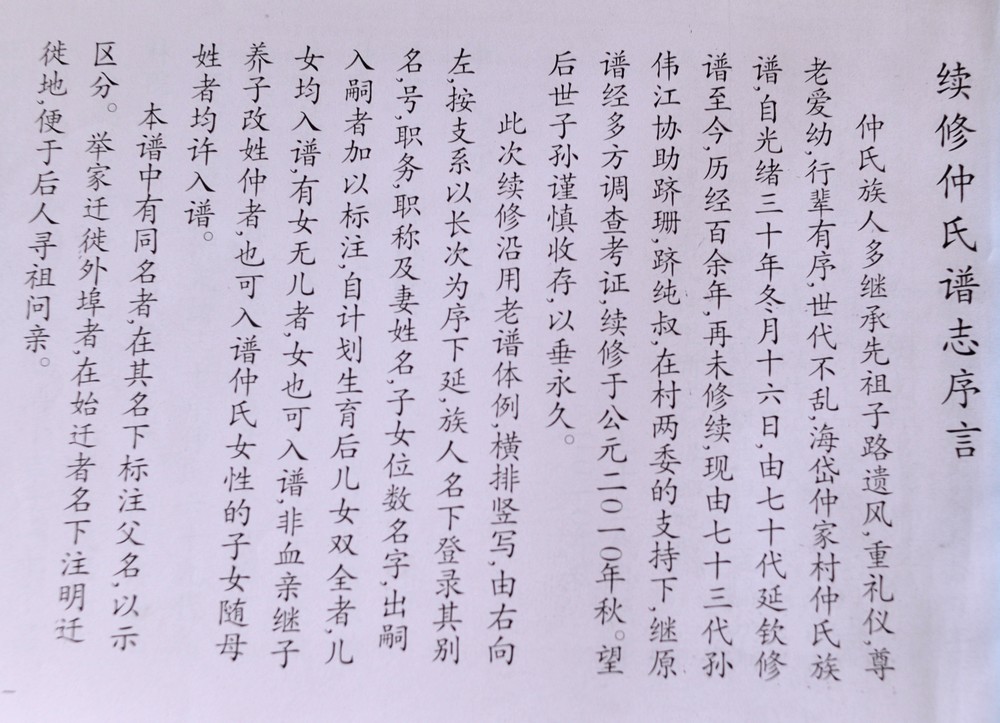 续修仲氏谱志序言
仲氏族人多继承先祖子路遗风,重礼仪,尊
老爱幼,行辈有序,世代不乱,海岱仲家村仲氏族
谱,自光绪三十年冬月十六日,由七十代延钦修
谱至今,历经百余年,再未修续,现由七十三代孙
伟江协助跻珊,跻纯叔,在村两委的支持下,继原
谱经多方调查考证,续修于公元二〇一〇年秋。望
后世子孙谨慎收存,以垂永久。
此次续修沿用老谱体例,横排竖写,由右向
左,按支系以长次为序下延,族人名下登录其别
名,号,职务,职称及妻姓名,子女位数名字,出嗣
入嗣者加以标注,自计划生育后儿女双全者,儿
女均入谱,有女无儿者,女也可入谱,非血亲继子
养子改姓仲者,也可入谱仲氏女性的子女随母
姓者均许入谱。
本谱中有同名者,在其名下标注父名,以示
区分。举家迁徙外埠者,在始迁者名下注明迁
徙地,便于后人寻祖问亲。